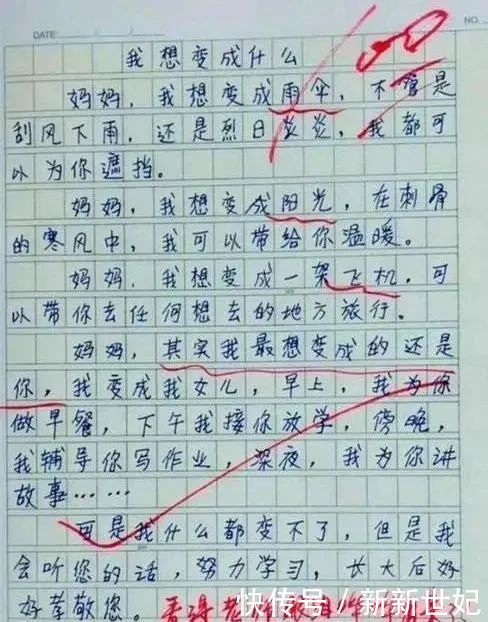 DATE:
NO.
我想变成什么
妈妈，我想变成雨伞，不管是
刮风下雨，还是烈日炎炎，我都可
以为你遮挡。
妈妈，我想变成阳光，在刺骨
的寒风中，我可以带给你温暖。
妈妈，我想变成一架飞机，可
以带你去任何想去的地方旅行。
妈妈，其实我最想变成的还是
你，我变成我女儿，早上，我为你
做早餐，下午我接你放学，傍晚，
我辅导你写作业，深夜，我为你讲
故事……
可是我什么都变不了，但是我
会听您的话，努力学习，长大后好
好孝敬您。
快传号／新新世妃